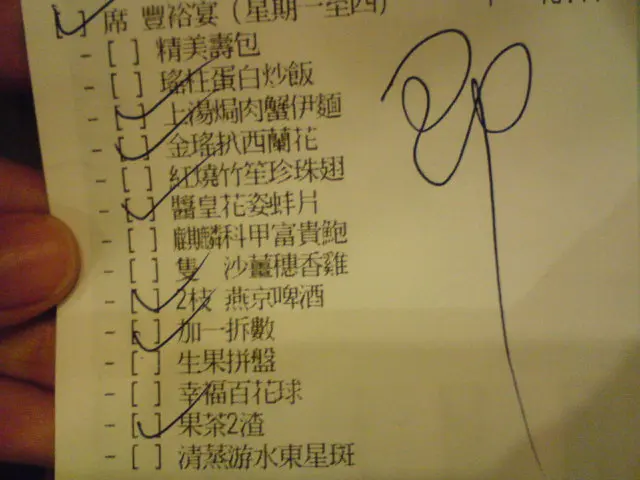 [ ] 席 豐裕宴 (星期一至四)
- [ ] 精美壽包
- [ ] 瑤柱蛋白炒飯
- [ ] 上湯焗肉蟹伊麵
- [ ] 金瑤扒西蘭花
- [ ] 紅燒竹笙珍珠翅
- [ ] 醬皇花姿蚌片
- [ ] 麒麟科甲富貴鮑
- [ ] 隻 沙薑穗香雞
- [ ] 2枝 燕京啤酒
- [ ] 加一折數
- [ ] 生果拼盤
- [ ] 幸福百花球
- [ ] 果茶2渣
- [ ] 清蒸游水東星斑